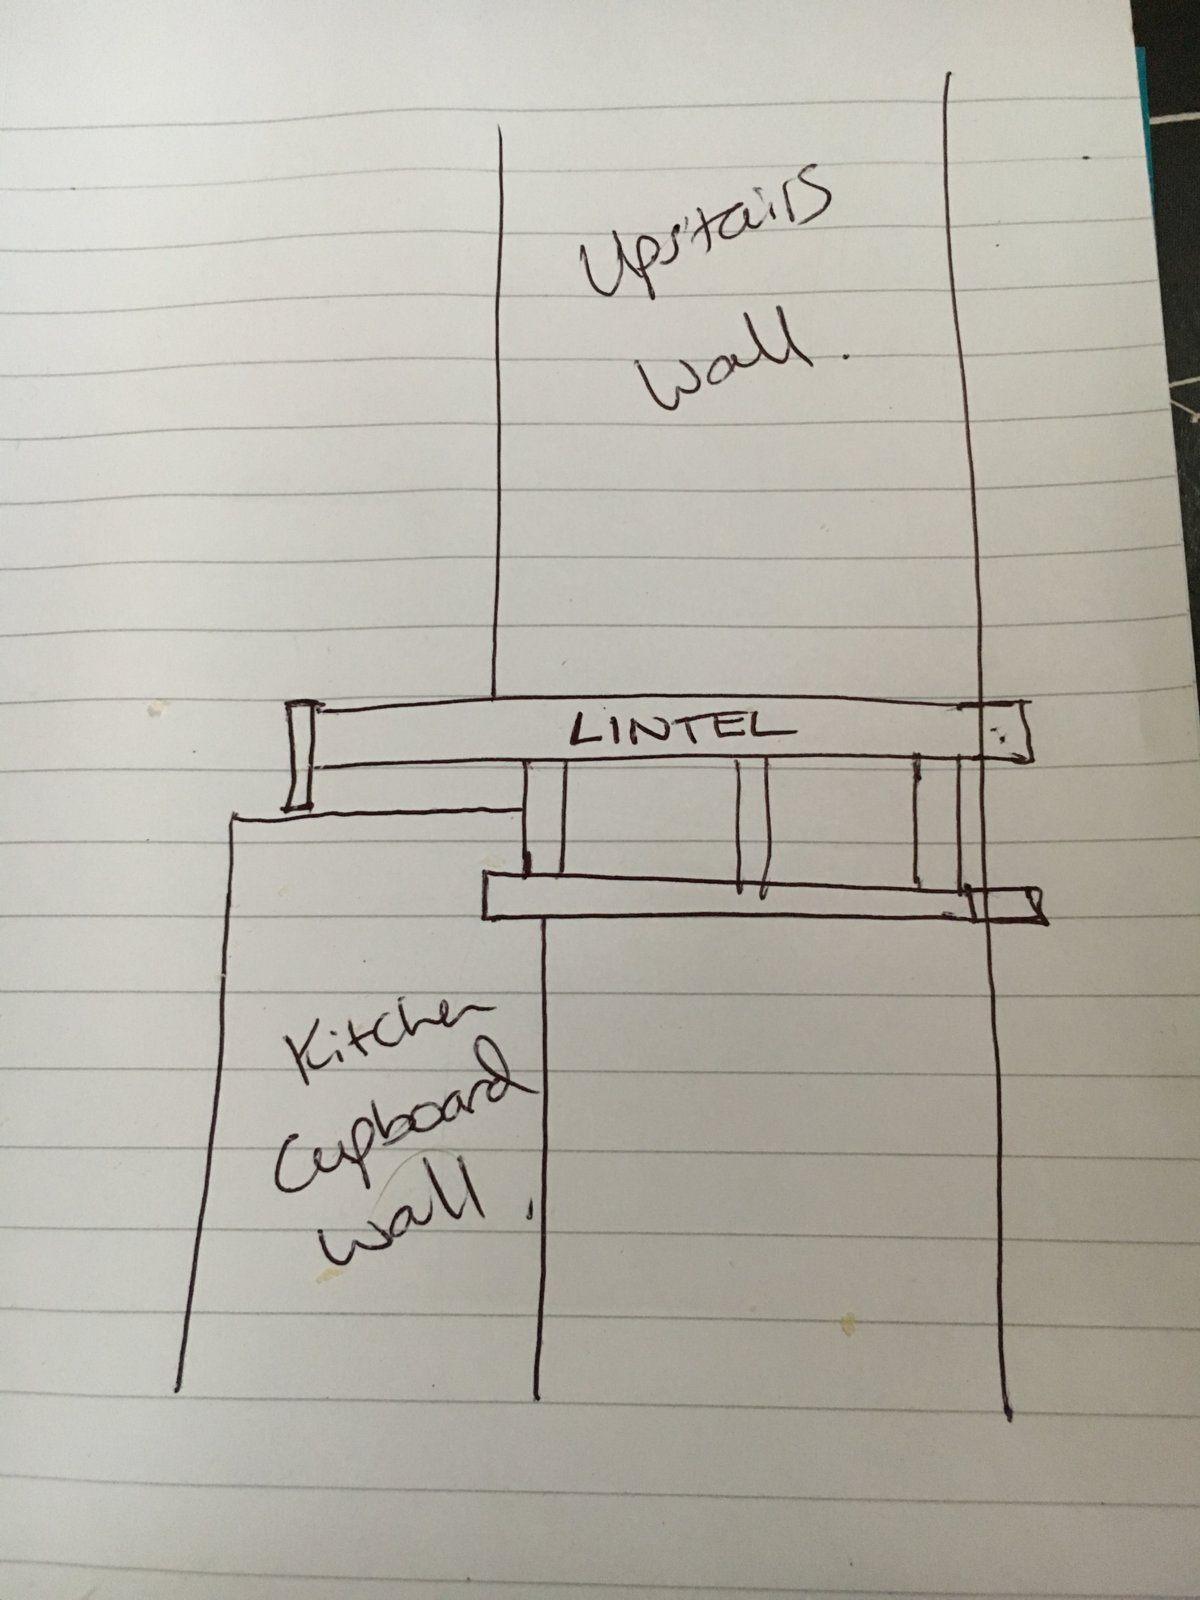 Upstairs
Wall.
LINTEL
Kitchen
Cupboard
Wall.